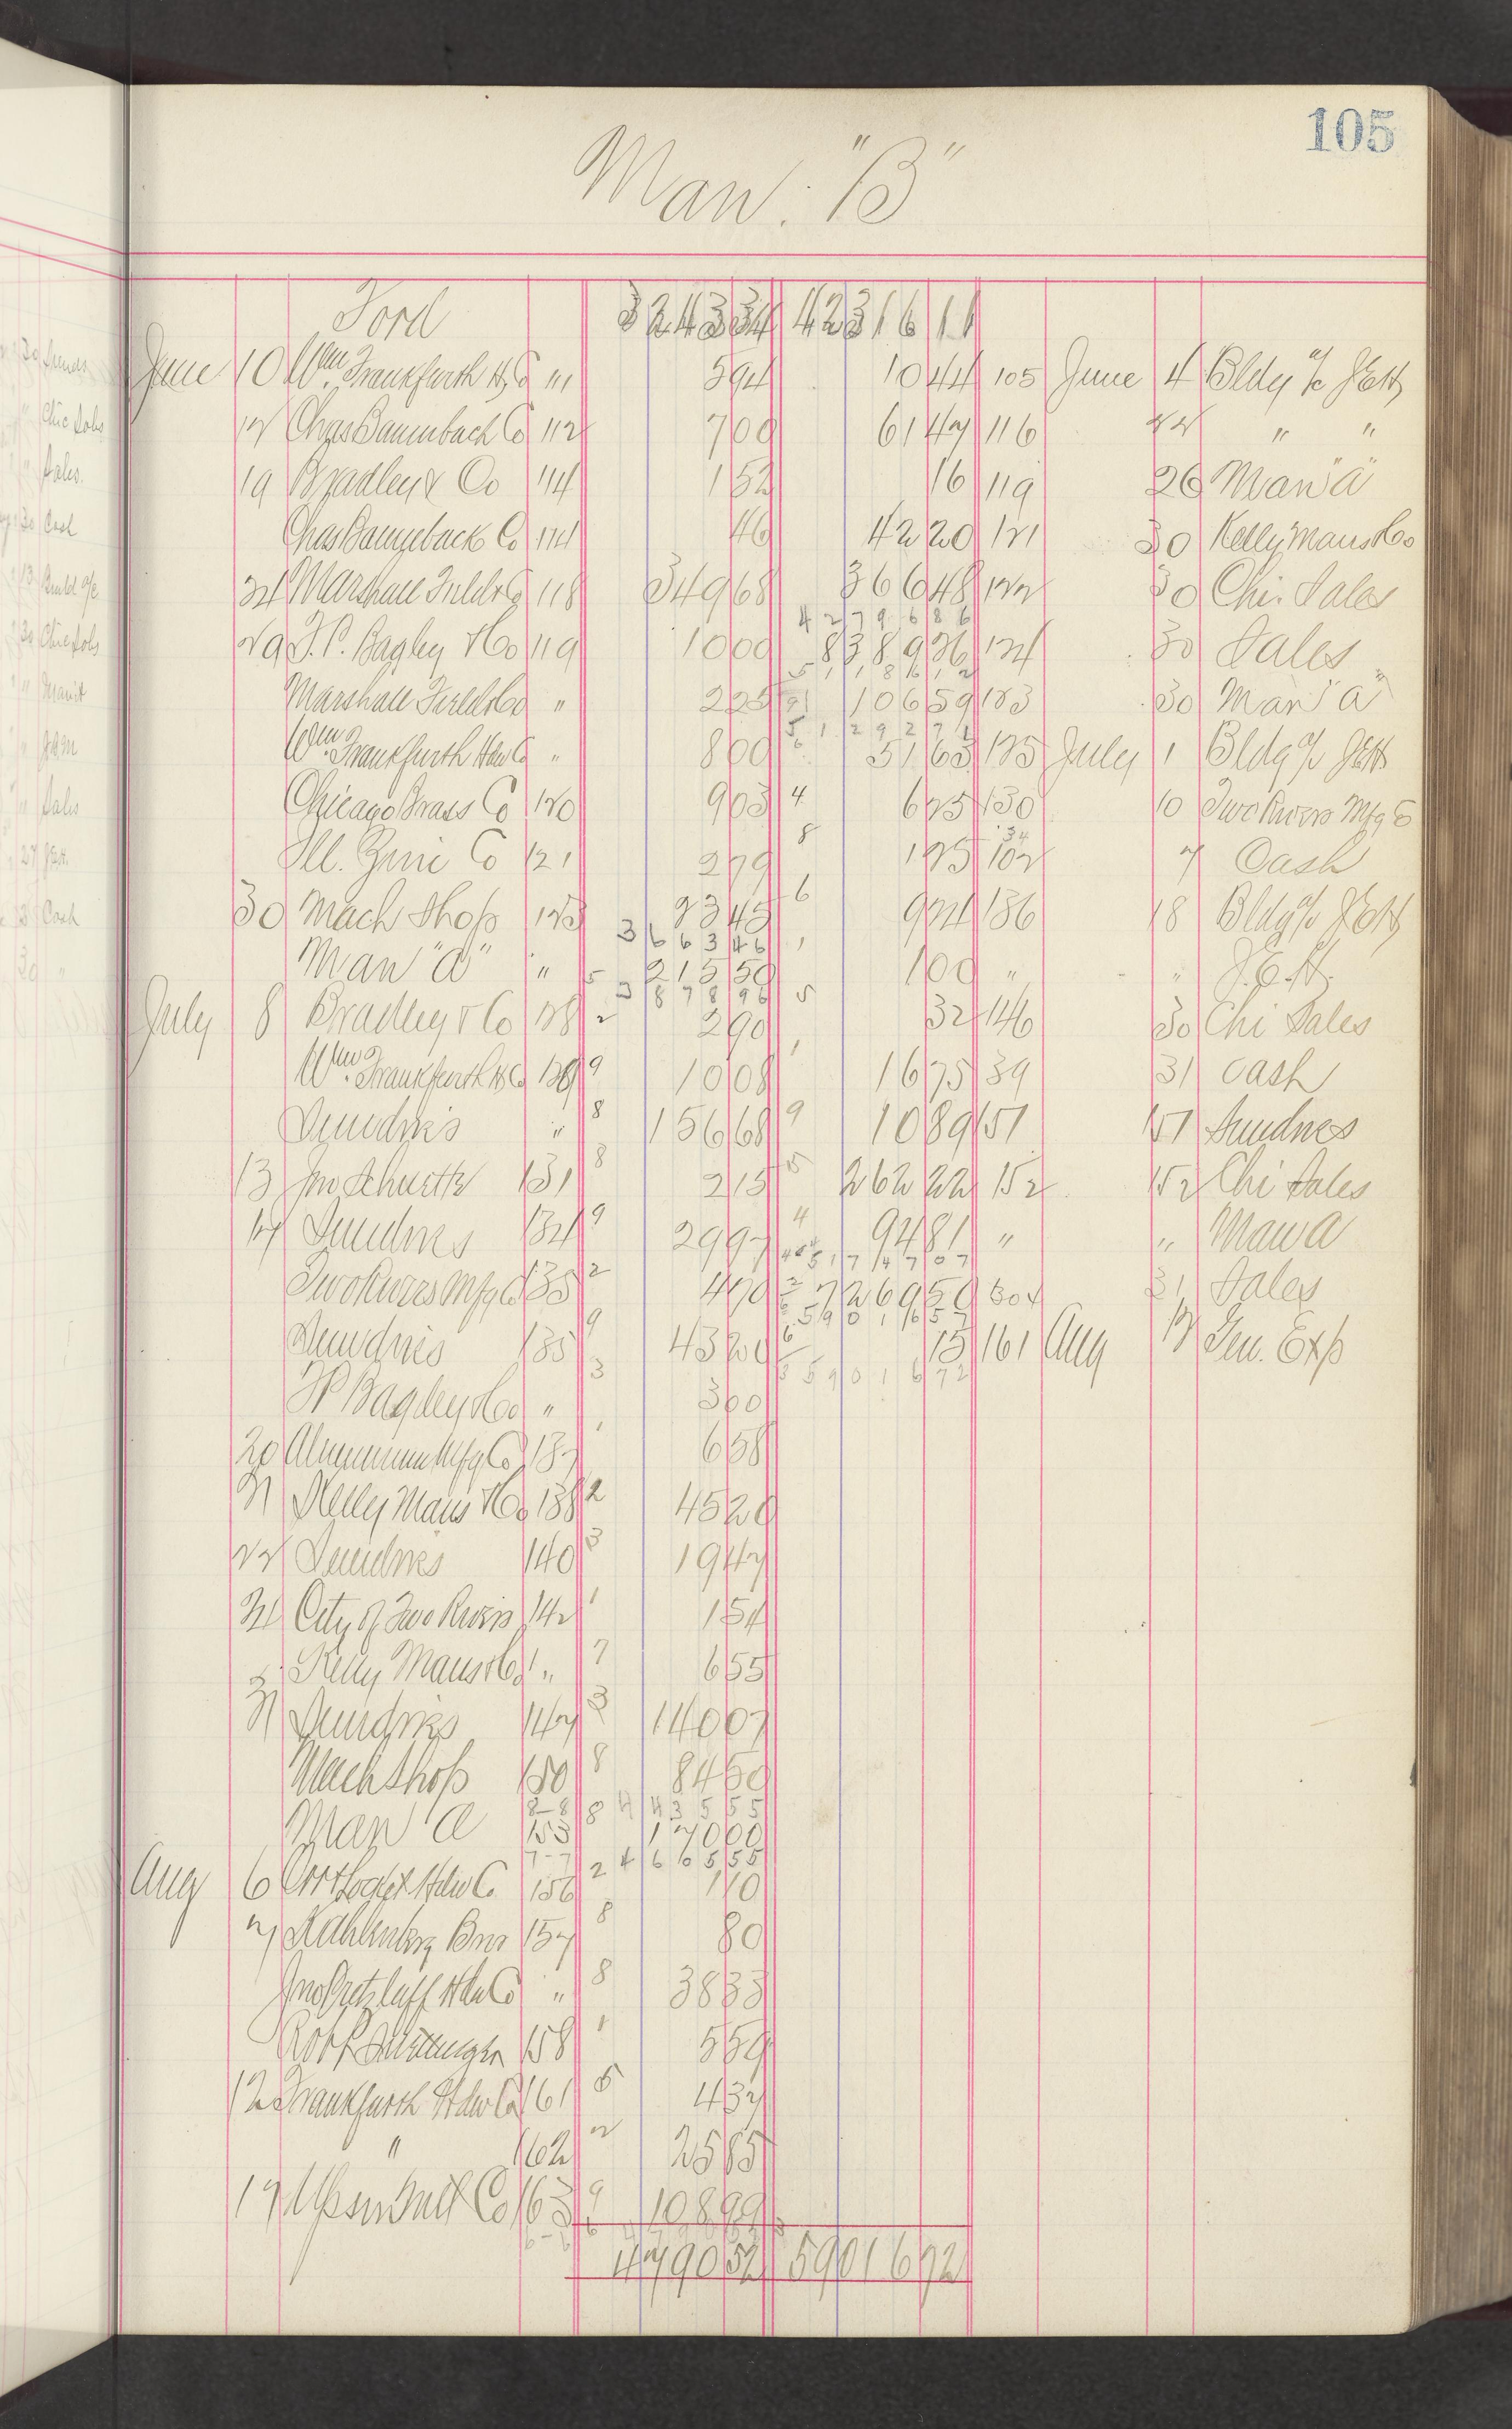 105
Man. "B"
Ford 3243 34 42316 11
June 10 Wm Frankfurth H Co 111 5 94 10 44 105 June 4 Bldg a/c JEH
Chas Baumbach Co 112 7 00 61 47 116 22 " "
19 Bradley & Co 114 1 52 16 119 26 Man "A"
Chas Baumback Co 114 46 42 20 121 30 Kelly Maus & Co
24 Marshall Field & Co 118 349 68 366 48 122 30 Chi. Sales
42796 86
29 F.P. Bagley & Co 119 10 00 8389 36 124 30 Sales
Marshall Field & Co " 2 25 106 59 123 30 Man "A"
Wm Frankfurth Hdw Co " 8 00 51 63 125 July 1 Bldg a/c JEH
Chicago Brass Co 120 9 03 6 25 130 10 Two Rivers Mfg Co
Ill. Zinc Co 121 2 79 1 25 132 7 Cash
30 Mach Shop 123 23 45 9 24 136 18 Bldg a/c JEH
3663 46
Man "A" " 215 50 1 00 " " J.E.H.
3878 96
July 8 Bradley & Co 128 2 90 32 146 30 Chi Sales
Wm Frankfurth H Co 129 10 08 16 75 39 31 Cash
Sundries " 156 68 10 89 151 151 Sundries
13 Jno Schuette 131 2 15 262 22 152 152 Chi Sales
17 Sundries 134 29 97 94 81 " " Man A
Two Rivers Mfg Co 135 4 70 7269 50 31 Sales
Sundries 135 43 20 15 161 Aug 12 Gen. Exp
FP Bagley & Co " 3 00 59016 72
20 Aluminum Mfg Co 137 6 58
21 Kelly Maus & Co 138 45 20
22 Sundries 140 19 47
24 City of Two Rivers 142 1 54
Kelly Maus & Co " 6 55
31 Sundries 147 140 07
Mach Shop 150 84 50
4435 55
Man A 153 170 00
4665 55
Aug 6 Hdw Co 156 1 10
7 Kahlenberg Bros 157 80
Jno Pritzlaff Hdw Co " 38 33
158 5 59
12 Frankfurth Hdw Co 161 4 37
" 162 25 85
17 Upson Nut Co 163 108 99
4790 52 59016 72